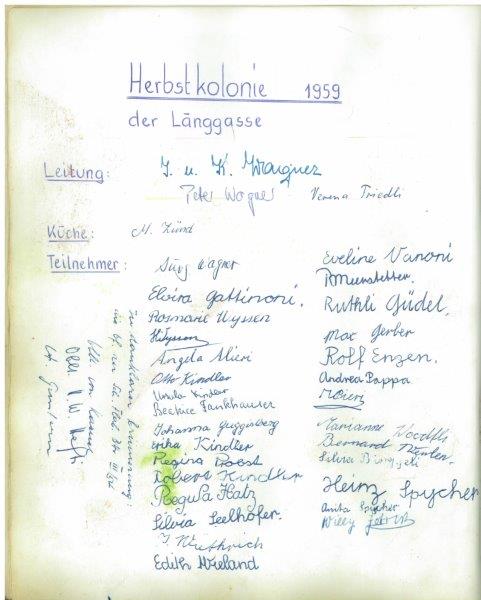 Herbstkolonie 1959
der Länggasse
Leitung: J. u. K. Wagner
Peter Wagner Verena Friedli
Küche: M. Zünd
Teilnehmer: Jürg Wagner
Elvira Gattinoni.
Rosmarie Nyssen
Angela Alieri
Otto Kindler
Ursula Kindler
Beatrice Fankhauser
Johanna Guggisberg
Erika Kindler
Regina Probst
Robert Kindler
Regula Hatz
Silvia Seelhofer.
J. Wüthrich
Edith Wieland
Eveline Vanoni
Ruthli Güdel.
Max Gerber
Rolf Enzen.
Andrea Pappa
Meier
Marianne
Bernard
Silvia
Heinz Spycher
Anita Spycher
Willy
In dankbarer Erinnerung: